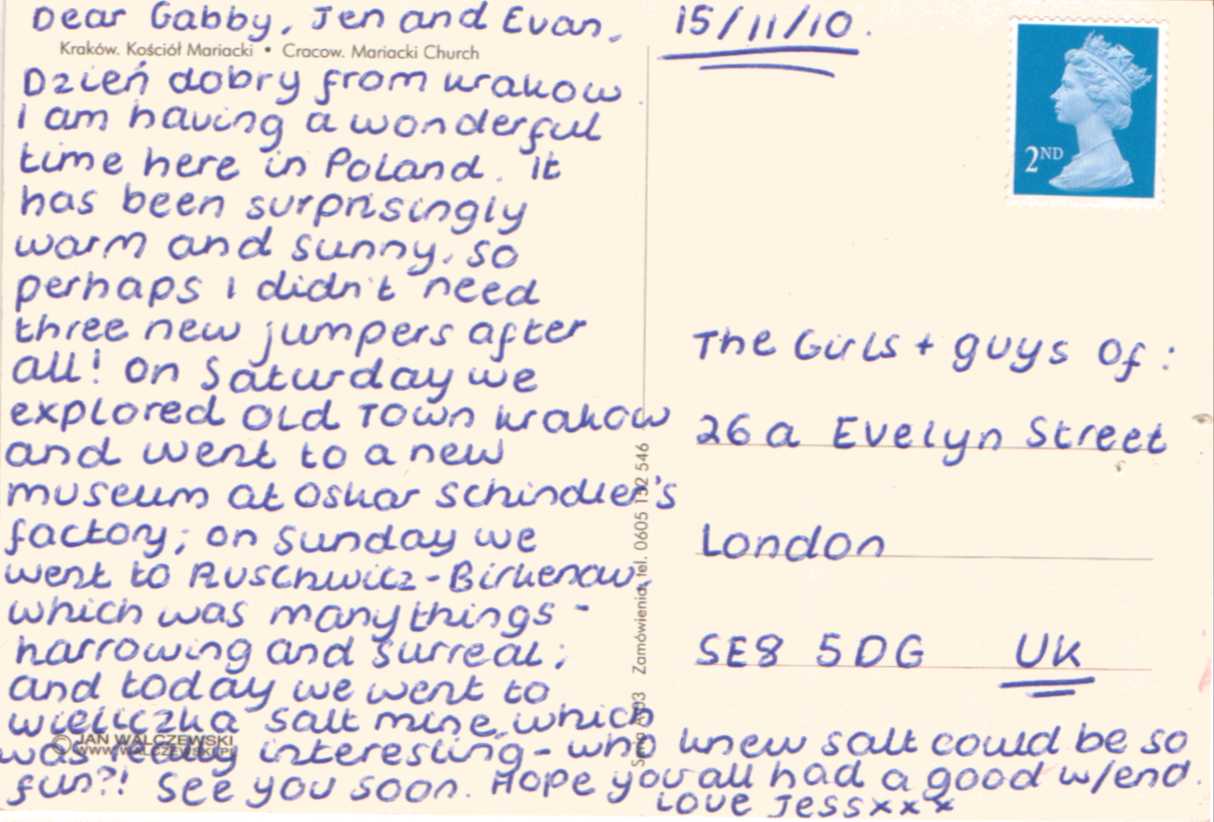 Dear Gabby, Jen and Evan,
15/11/10.
Kraków. Kościół Mariacki • Cracow. Mariacki Church
Dzień dobry from Krakow.
I am having a wonderful
time here in Poland. It
has been surprisingly
warm and sunny, so
perhaps I didn't need
three new jumpers after
all! On Saturday we
explored Old Town Krakow
and went to a new
museum at Oskar Schindler's
factory; on Sunday we
went to Auschwicz-Birkenau,
which was many things -
harrowing and surreal;
and today we went to
Wieliczka salt mine, which
was really interesting - who knew salt could be so
fun?! See you soon. Hope you all had a good w/end.
Love Jess xxx
© JAN WALCZEWSKI
WWW.WALCZEWSKI.PL
Zamówienia, tel. 0605 132 546
2ND
The Girls + guys of:
26a Evelyn Street
London
SE8 5DG UK